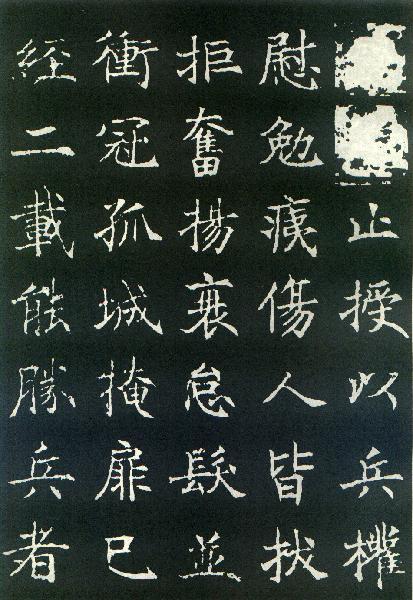 止授以兵權
慰勉痍傷人皆
拒奮揚衰怠髮並
衝冠孤城掩扉已
經二載能勝兵者